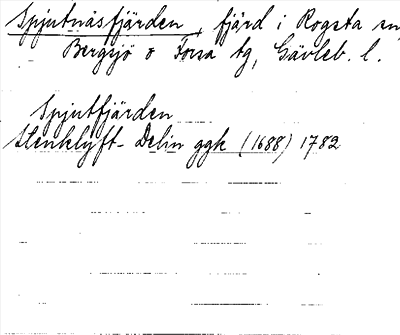 Spjutnäsfjärden, fjärd i Rogsta sn,
Bergsjö o Forsa tg, Gävleb. l.
Spjutfjärden
Stenklyft-Delin ggk (1688) 1782